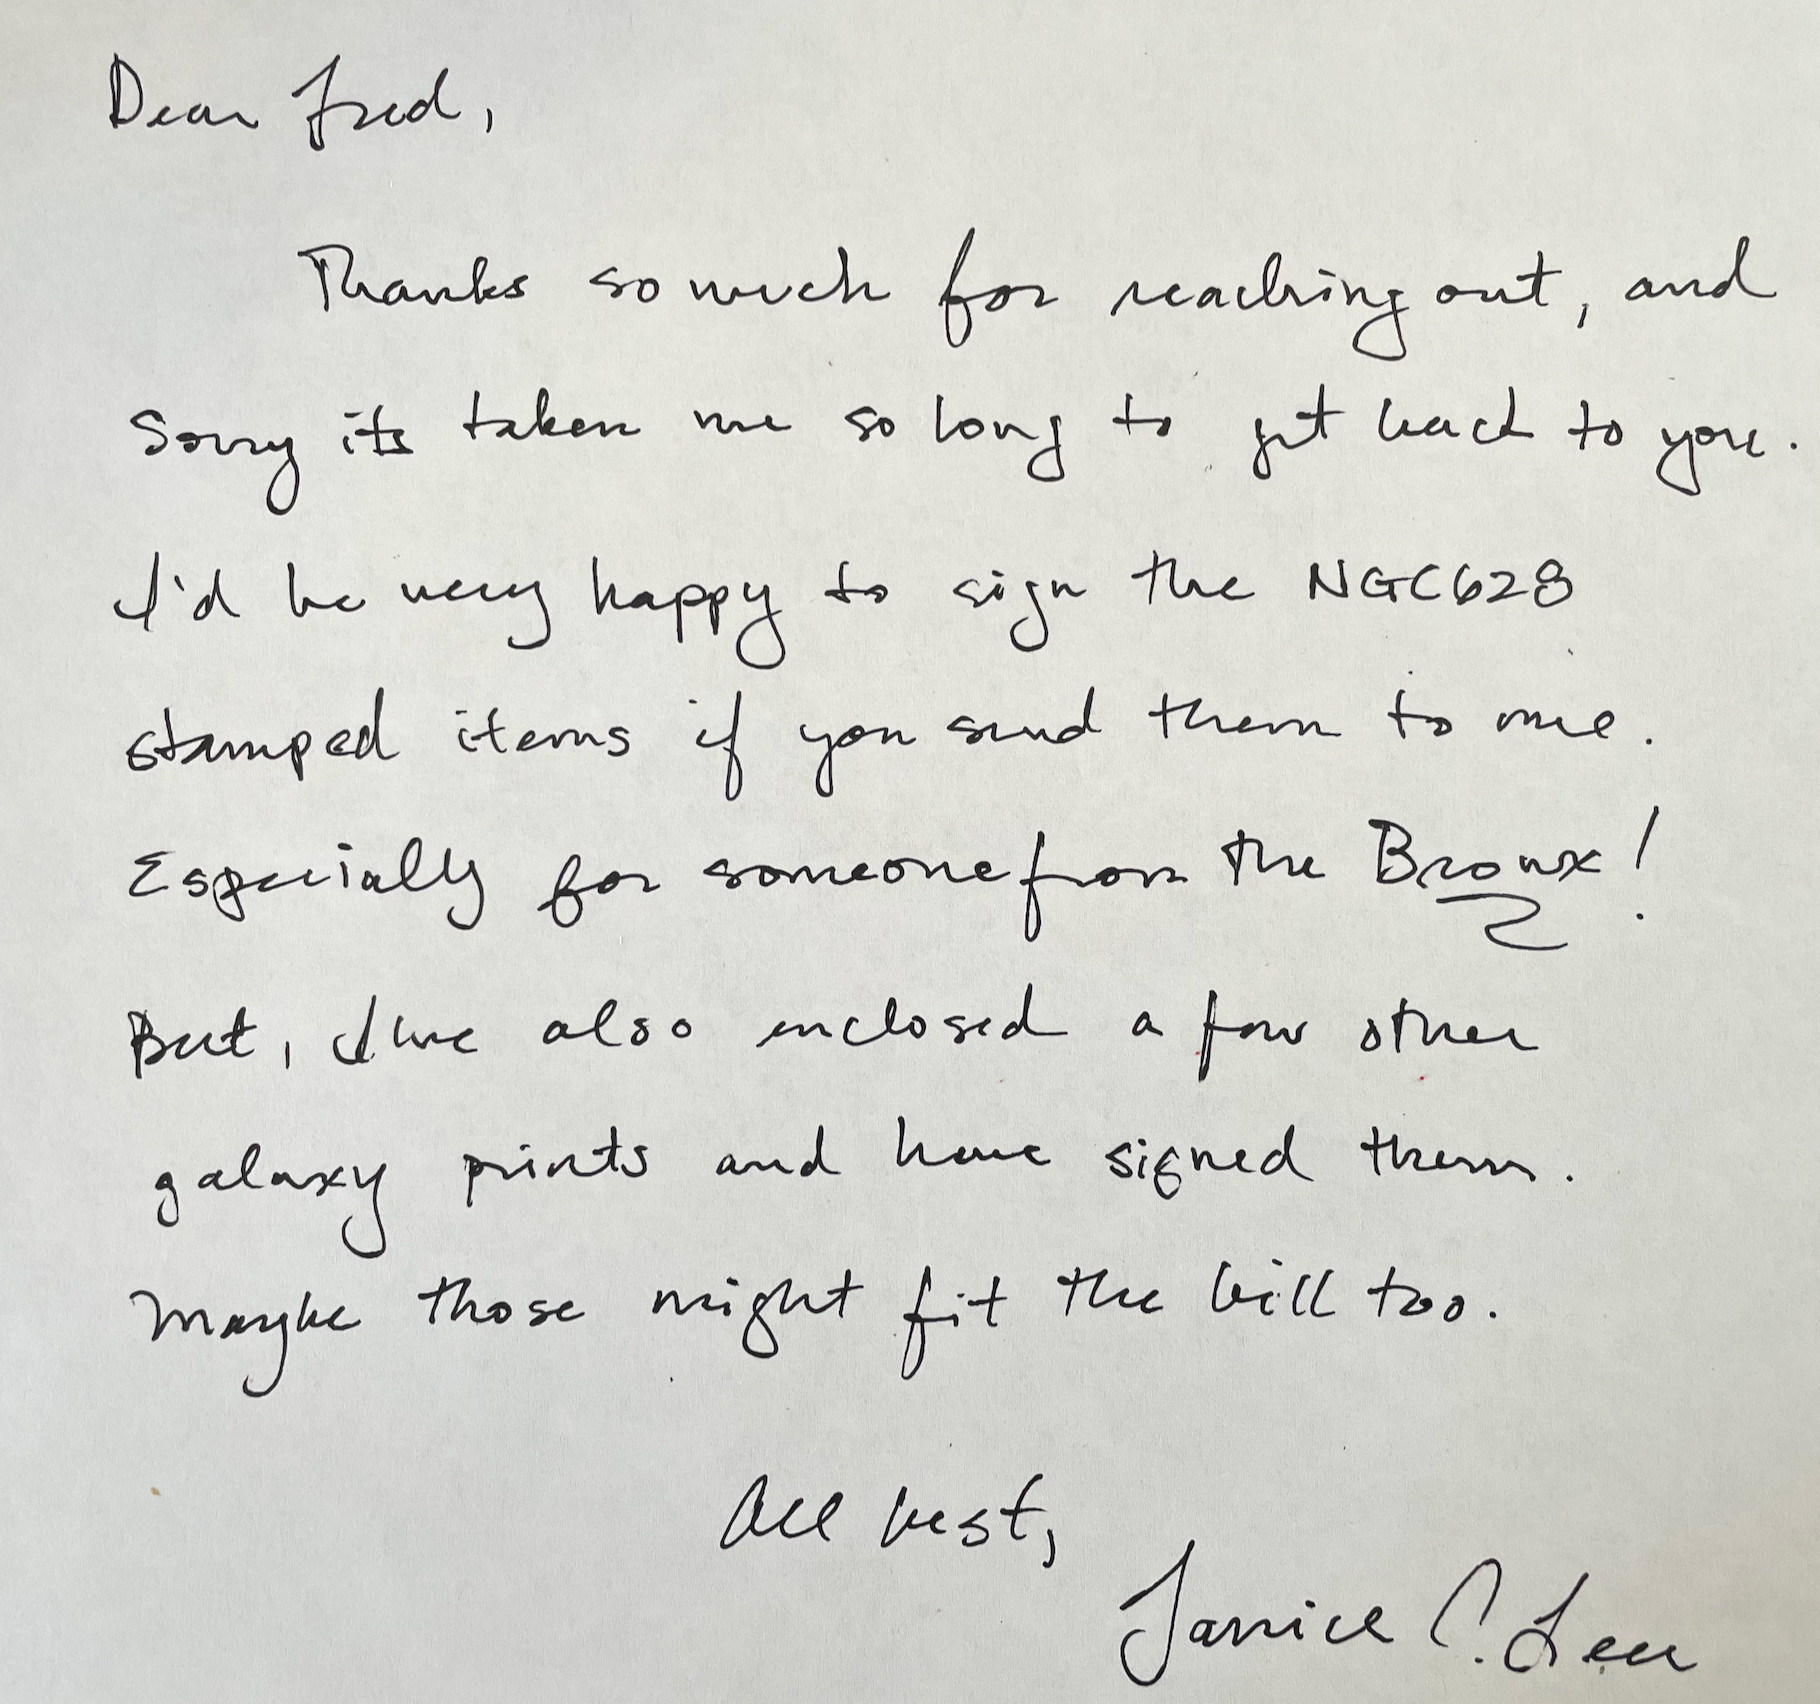 Dear Fred,
Thanks so much for reaching out, and
sorry its taken me so long to get back to you.
I'd be very happy to sign the NGC628
stamped items if you send them to me.
Especially for someone from the Bronx!
But, I've also enclosed a few other
galaxy prints and have signed them.
Maybe those might fit the bill too.
All best,
Janice C. Lee